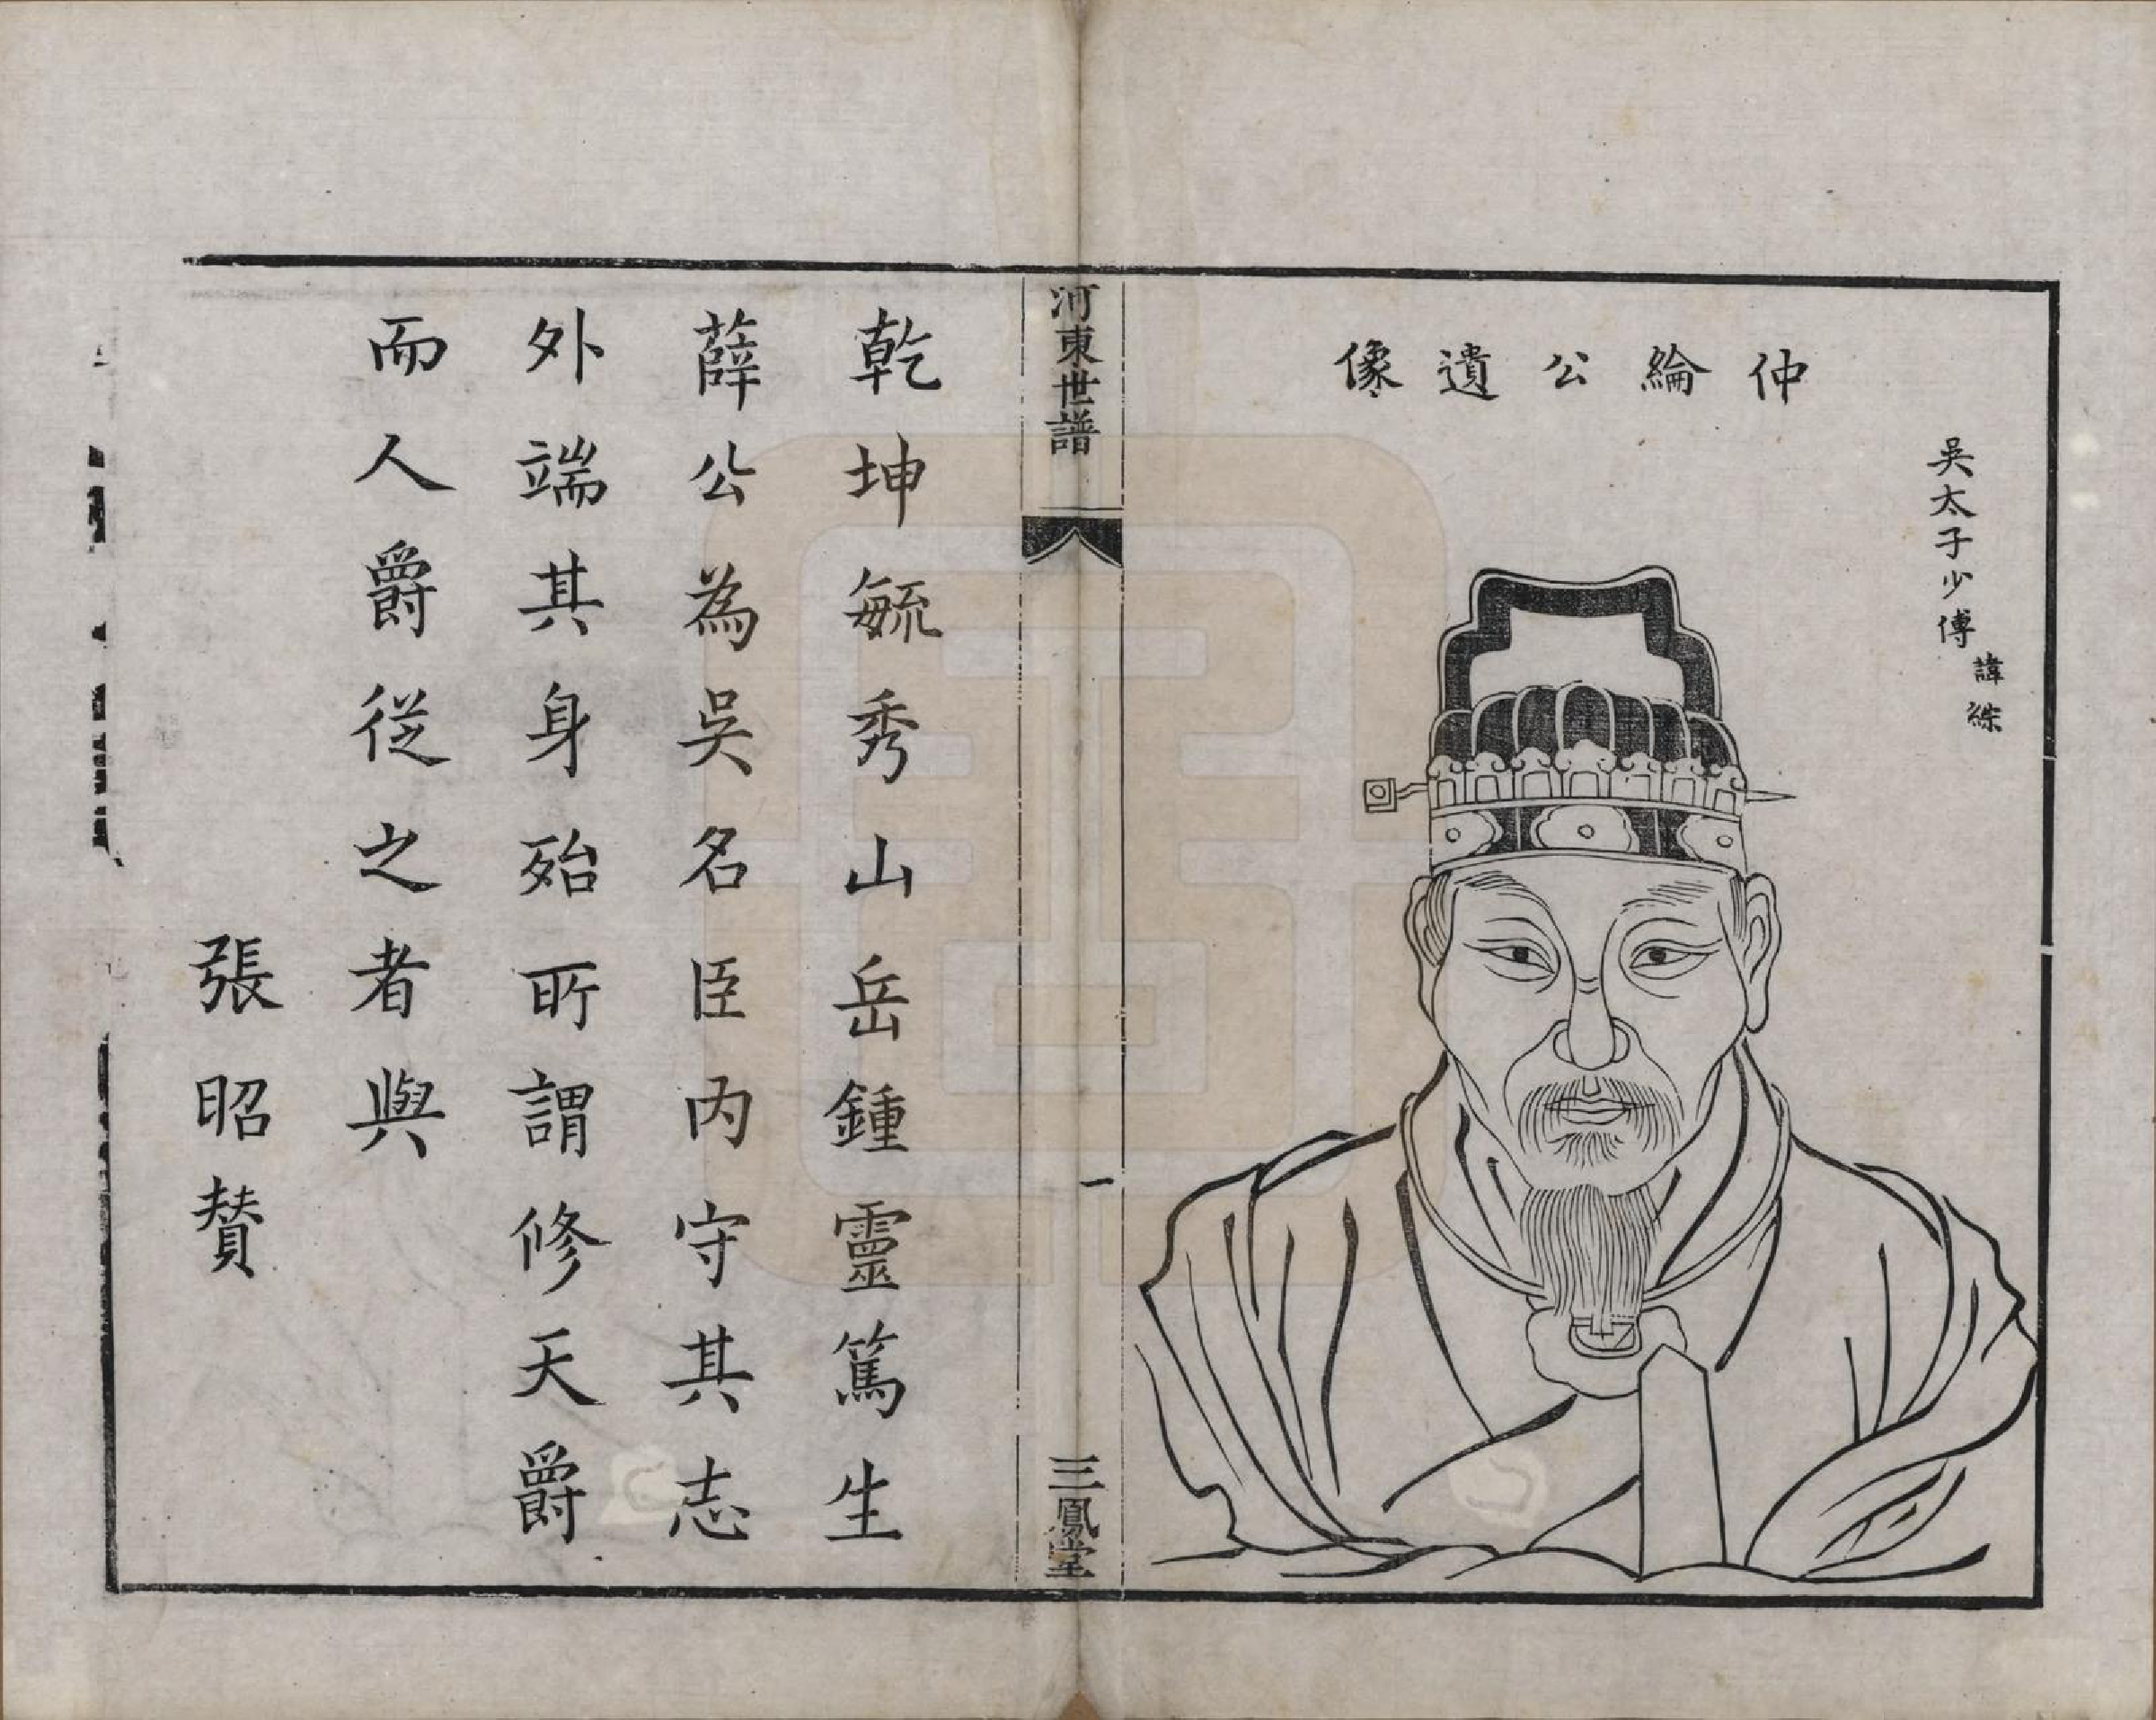 仲綸公遺像
吳太子少傅
諱綜
河東世譜
一
三鳳堂
乾坤毓秀山岳鍾靈篤生
薛公為吳名臣內守其志
外端其身殆所謂修天爵
而人爵從之者與
張昭贊